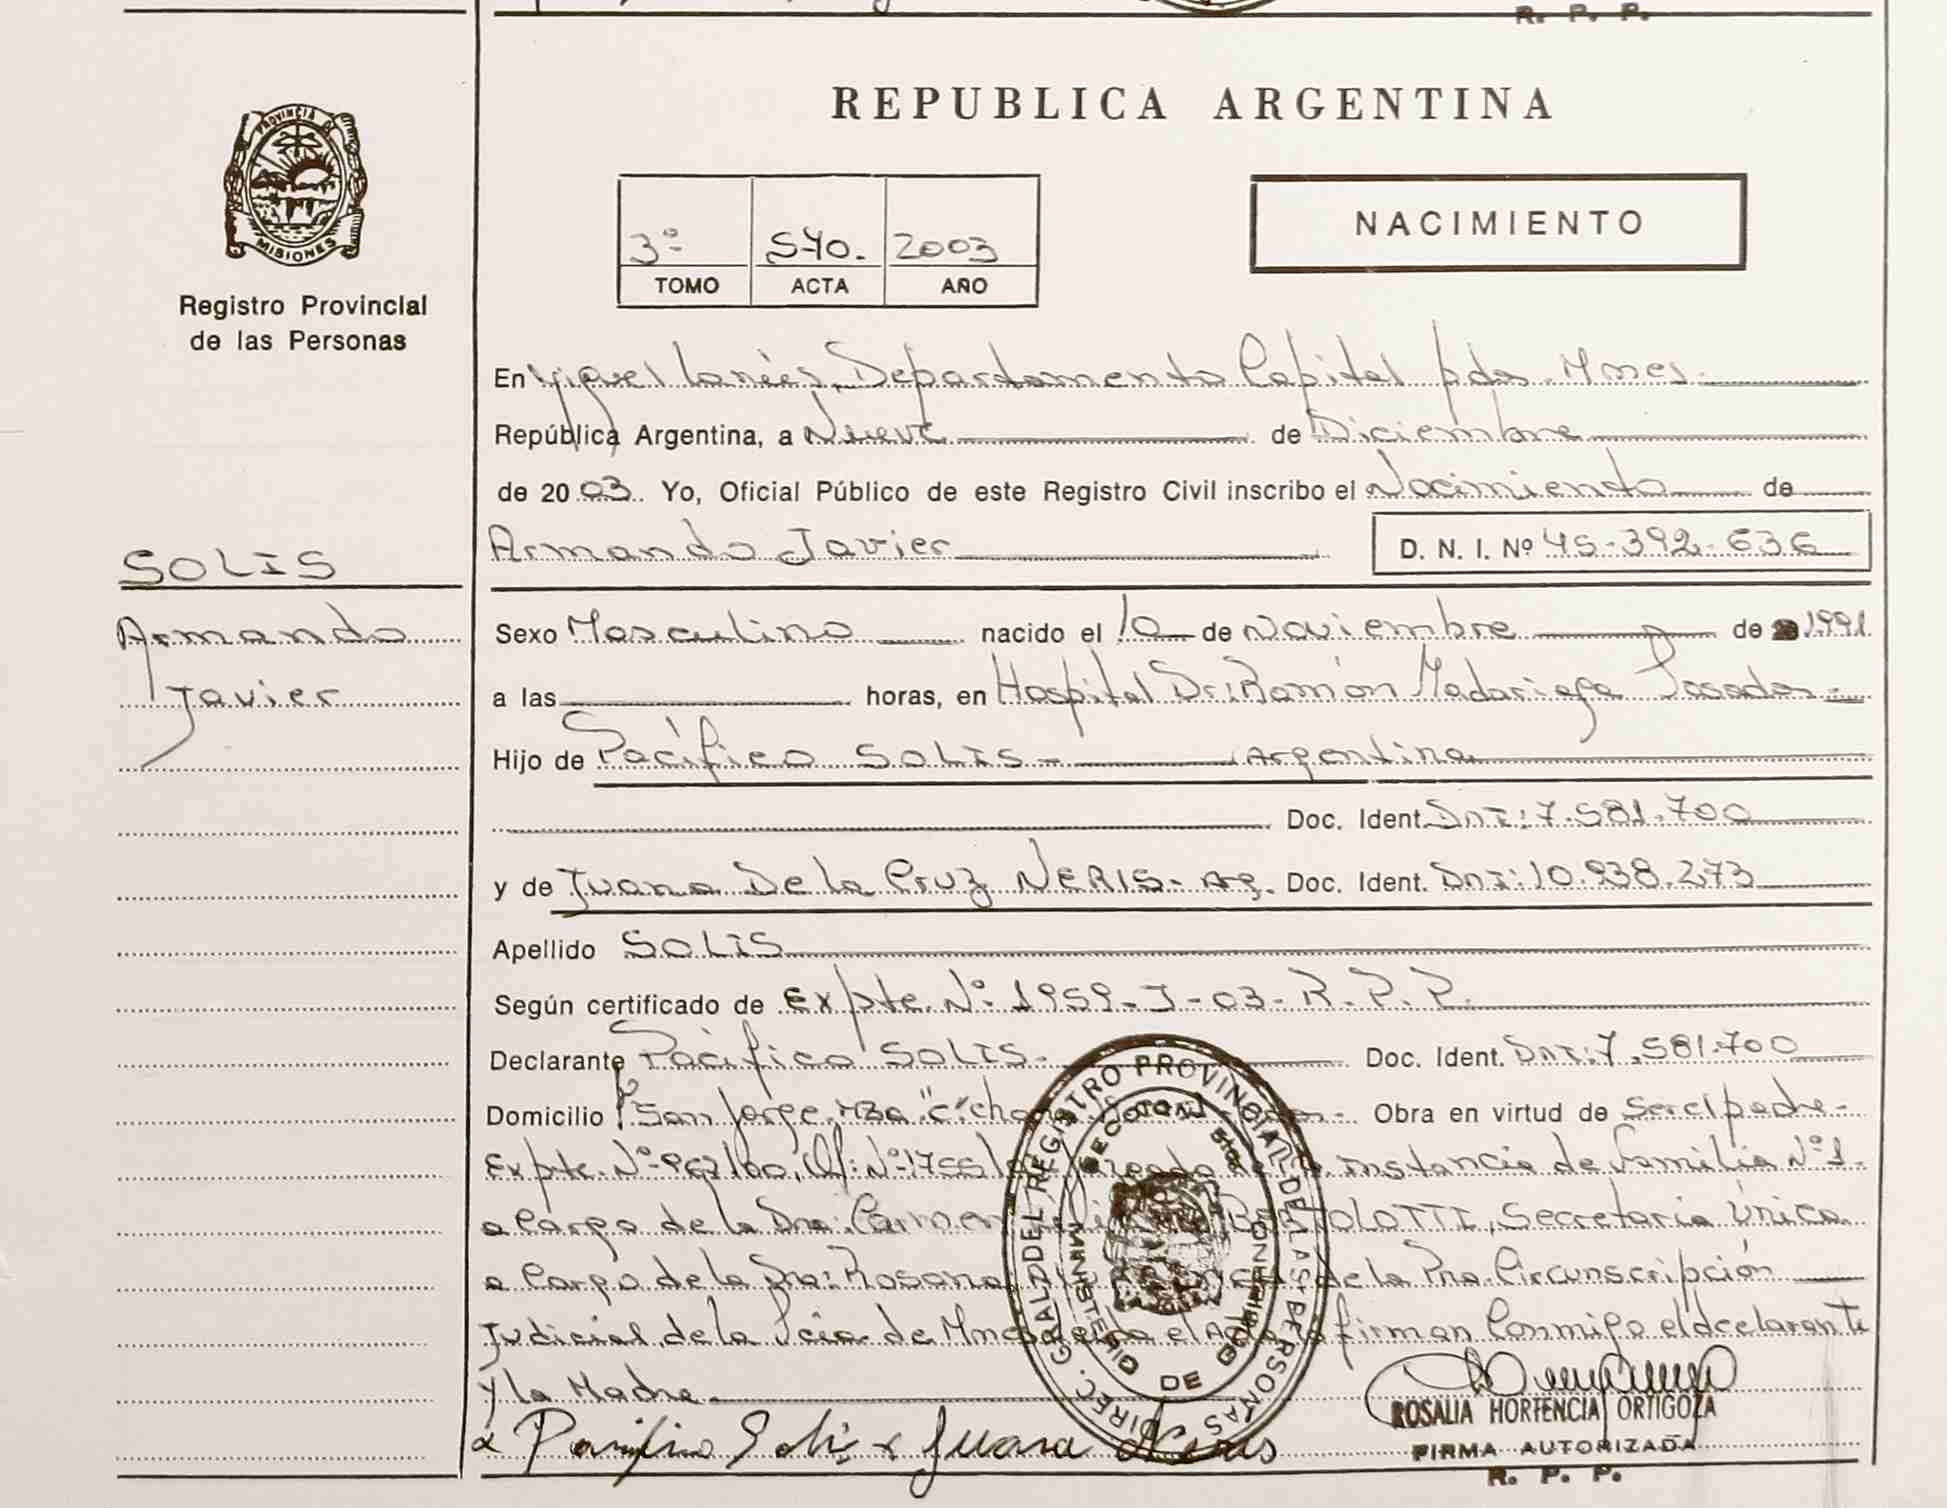 R. P. P.
PROVINCIA DE
MISIONES
Registro Provincial
de las Personas
REPUBLICA ARGENTINA
3º 540. 2003
TOMO ACTA AÑO
NACIMIENTO
En Miguel Lanús, Departamento Capital pdas. Mnes.
República Argentina, a Nueve de Diciembre
de 2003. Yo, Oficial Público de este Registro Civil inscribo el Nacimiento de
Armando Javier D. N. I. Nº 45-392-636
SOLIS
Armando
Javier
Sexo Masculino nacido el 10 de Noviembre de 1991
a las horas, en Hospital Dr: Ramón Madariaga Posadas-
Hijo de Pacífico SOLIS- Argentina
Doc. Ident. DNI: 7.581.700
y de Juana De la Cruz NERIS- Arg. Doc. Ident. DNI: 10.938.273
Apellido SOLIS
Según certificado de Expte. Nº 1959-J-03-R.P.P.
Declarante Pacífico SOLIS- Doc. Ident. DNI: 7.581.700
Domicilio Bº San Jorge, Mza "C" Obra en virtud de Ser el padre-
Expte. Nº 967/00, Of: Nº 1755 Instancia de Familia Nº 1-
a Cargo de la Dra: Carmen BERTOLOTTI, Secretaria Única
a Cargo de la Dra: Rosana de la Pra. Circunscripción
Judicial de la Pcia. de Mnes el Acta firman Conmigo el declarante
y la Madre
Pacifico Solis x Juana Neris
DIREC. GRAL. DEL REGISTRO PROVINCIAL DE LAS PERSONAS
MINISTERIO DE GOBIERNO
ROSALIA HORTENCIA ORTIGOZA
FIRMA AUTORIZADA
R. P. P.